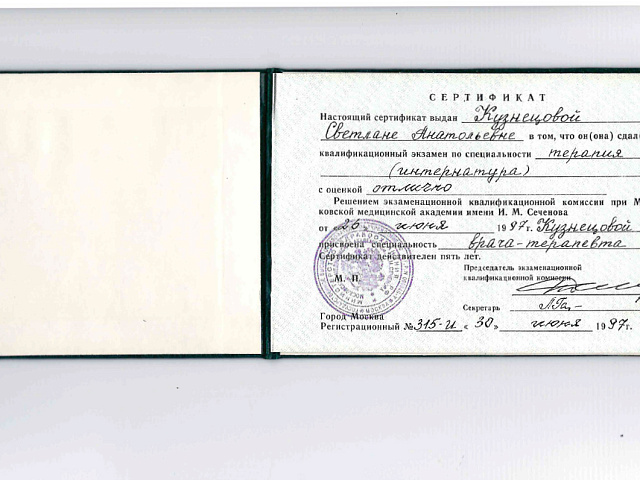 СЕРТИФИКАТ
Настоящий сертификат выдан Кузнецовой
Светлане Анатольевне в том, что он(она) сдал
квалификационный экзамен по специальности терапия
(интернатура)
с оценкой отлично
Решением экзаменационной квалификационной комиссии при М
ковской медицинской академии имени И. М. Сеченова
от «26» июня 1997г. Кузнецовой
присвоена специальность врача-терапевта
Сертификат действителен пять лет.
Председатель экзаменационной
М. П. квалификационной комиссии
Секретарь
Город Москва
Регистрационный № 315-и « 30» июня 1997г.